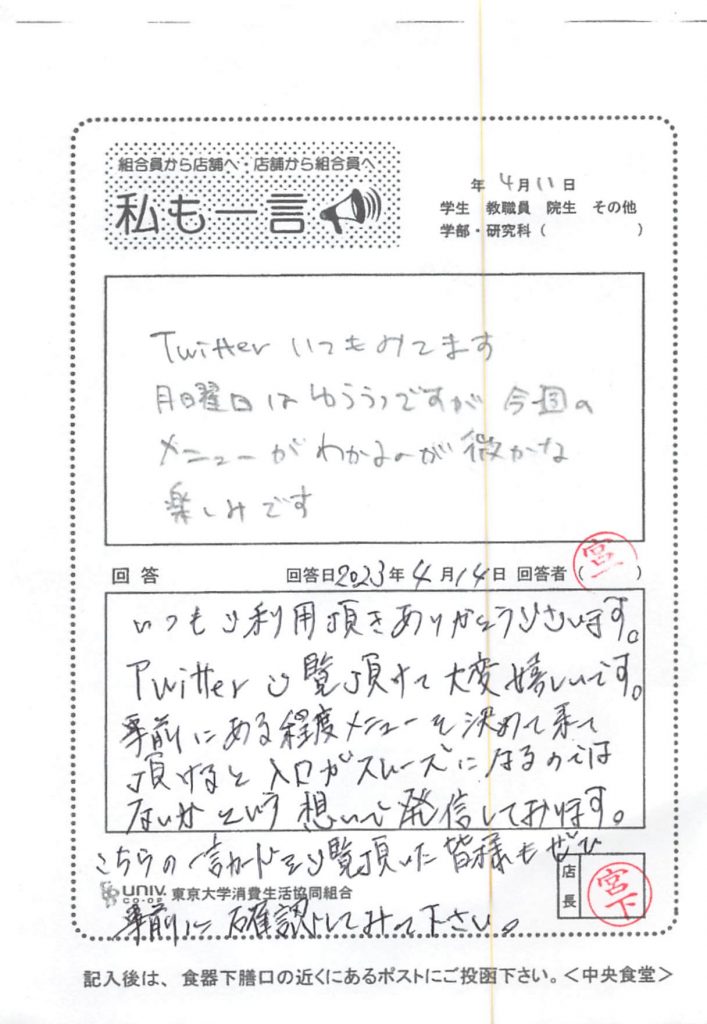 組合員から店舗へ・店舗から組合員へ
私も一言
年 4月11日
学生 教職員 院生 その他
学部・研究科( )
Twitter いつもみてます
月曜日はゆううつですが 今週の
メニューがわかるのが微かな
楽しみです
回答 回答日2023年4月14日 回答者( 宮一 )
いつもご利用頂きありがとうございます。
Twitterご覧頂けて大変嬉しいです。
事前にある程度メニューを決めて来て
頂けると入口がスムーズになるのでは
ないかという想いで発信しております。
こちらの一言カードをご覧頂いた皆様もぜひ
店長 宮下
UNIV. CO-OP 東京大学消費生活協同組合
事前に確認してみて下さい。
記入後は、食器下膳口の近くにあるポストにご投函下さい。<中央食堂>